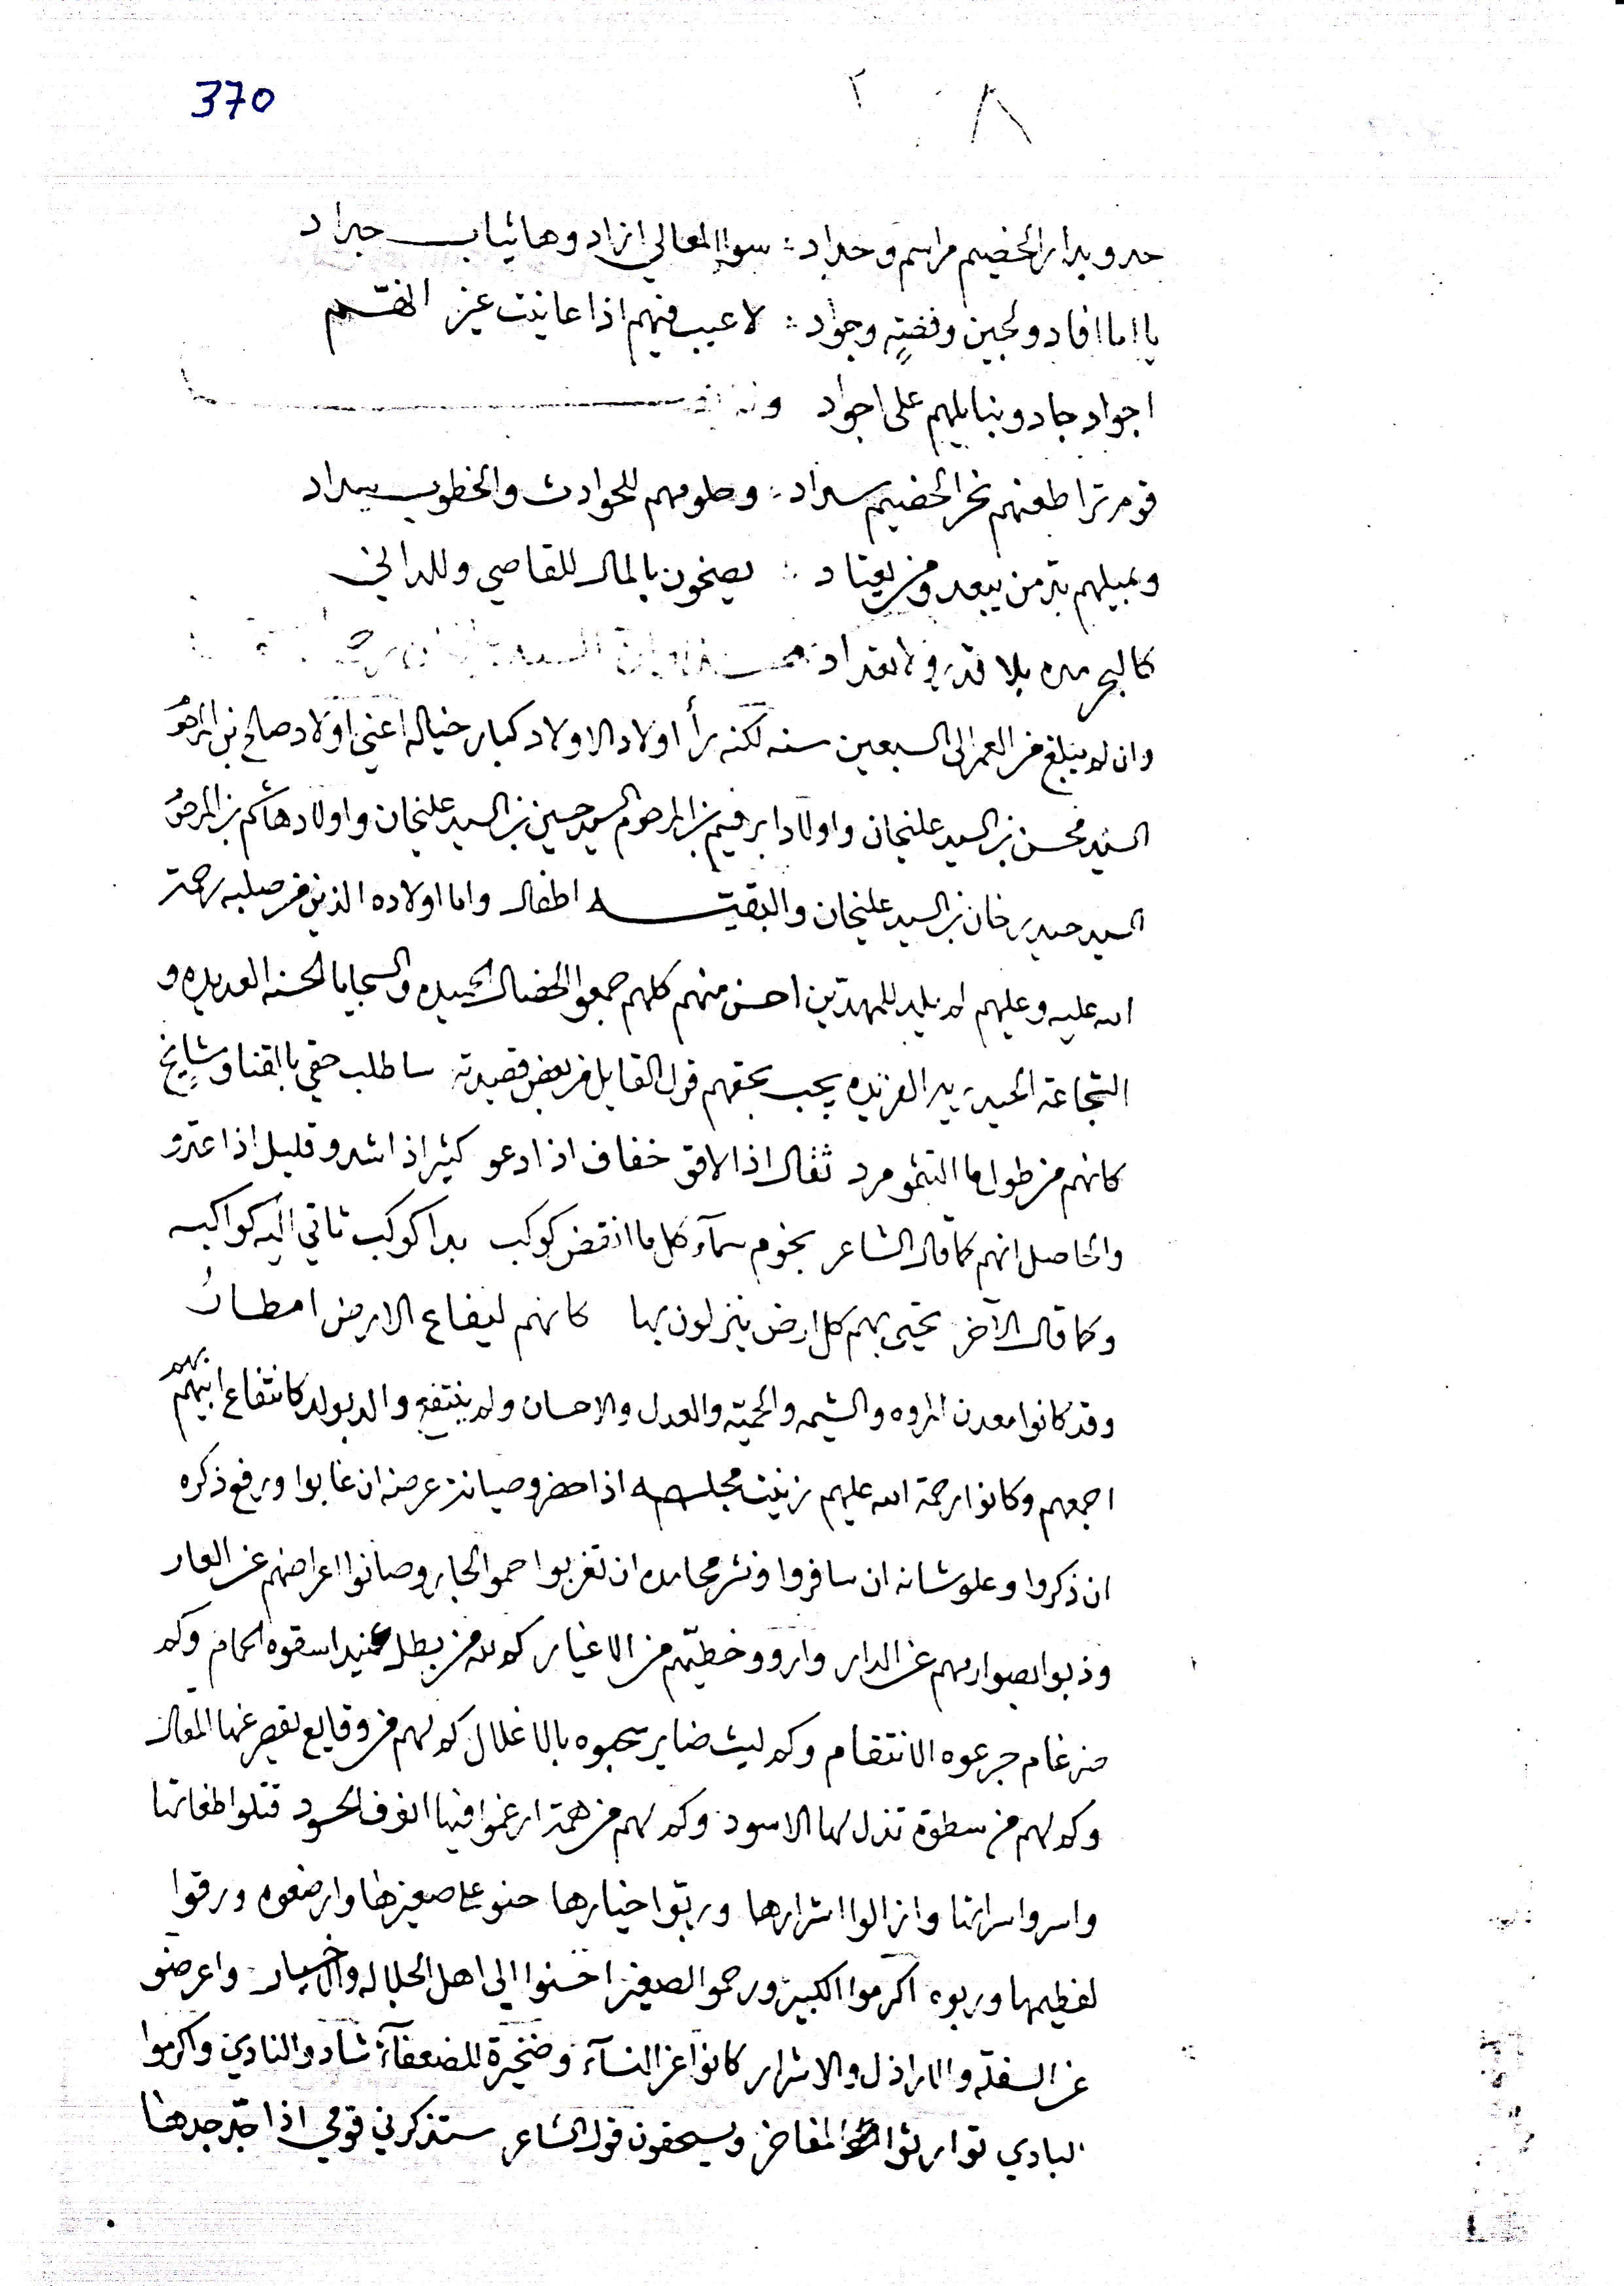 370
٢٠٨
حدو بدار الخصيم مراسم وحداد : سوا المعالي ازاد وها ثياب حداد
يا اما افاد ولجين وفضةٍ وجواد : لا عيب فيهم اذا عاينت غير
اجواد جاد وبنايلهم على اجواد
قوم ترا طعنهم نحر الخصيم سداد : وحلومهم للحوادث والخطوب سداد
وبميلهم بتر من يبعد ومن يعتاد : يصخون بالمال للقاصي وللداني
كالبحر مده بلا قدر ولا تعداد
وان لم يبلغ من العمر الى السبعين سنه لكنه رأ اولاد الاولاد كبار خياله اعني اولاد صالح بن المرحوم
السيد محسن بن السيد عليخان واولاد ابرهيم بن المرحوم السيد حسين بن السيد عليخان واولاد هاشم بن المرحوم
السيد حيدر خان بن السيد عليخان والبقيته اطفال واما اولاده الذين من صلبه رحمة
الله عليه وعليهم لم يلد للمهديين احسن منهم كلهم جمعوا الخصال الحميده والسجايا الحسنه العديده و
الشجاعة الحيدريه الفريده يجب بحقهم قول القايل من بعض قصيدته ساطلب حقي بالقنا ومشايخ
كانهم من طول ما التثمو مرد ثقال اذا لاقو خفاف اذا دعو كثير اذا شدو قليل اذا عدو
والحاصل انهم كما قال الشاعر نجوم سمآء كل ما انقض كوكب بدا كوكب تاتي اليه كواكبه
وكما قال الآخر تحيى بهم كل ارض ينزلون بها كانهم لبقاع الارض امطارُ
وقد كانوا معدن المروه والشيمه والحميّه والعدل والاحسان ولم ينتفع والد بولد كانتفاع ابيهم بهم
اجمعهم وكانوا رحمة الله عليهم زينت مجلسه اذا حضرو وصيانة عرضه ان غابوا ورفع ذكره
ان ذكروا وعلو شانه ان سافروا ونشر محامده ان تغربوا حمو الجار وصانوا اعراضهم عن العار
وذبوا بصوارمهم عن الدار وارو وخطيّهم من الاغيار كم لهم من بطل عنيد اسقوه الحمام وكم
ضرغام جرعوه الانتقام وكم ليث ضاير سحبوه بالاغلال كم لهم من وقايع يقصر عنها المقال
وكم لهم من سطوة تذل لها الاسود وكم لهم من همة ارغموا فيها انوف الحسود قتلوا طغاتها
واسروا سراتها وازالوا اشرارها وربّوا خيارها حنو على صغيرها وارضعوه ورقوا
لفطيمها وربوه اكرموا الكبير ورحموا الصغير احسنوا الى اهل الجلاله والاخيار واعرضو
عن السفله والاراذل والاشرار كانوا عز النسآء وضخيرة للضعفآء شادو النادي واكرموا
البادي توارثوا المفاخر ويسحقون قول الشاعر ستذكرني قومي اذا جد جدها